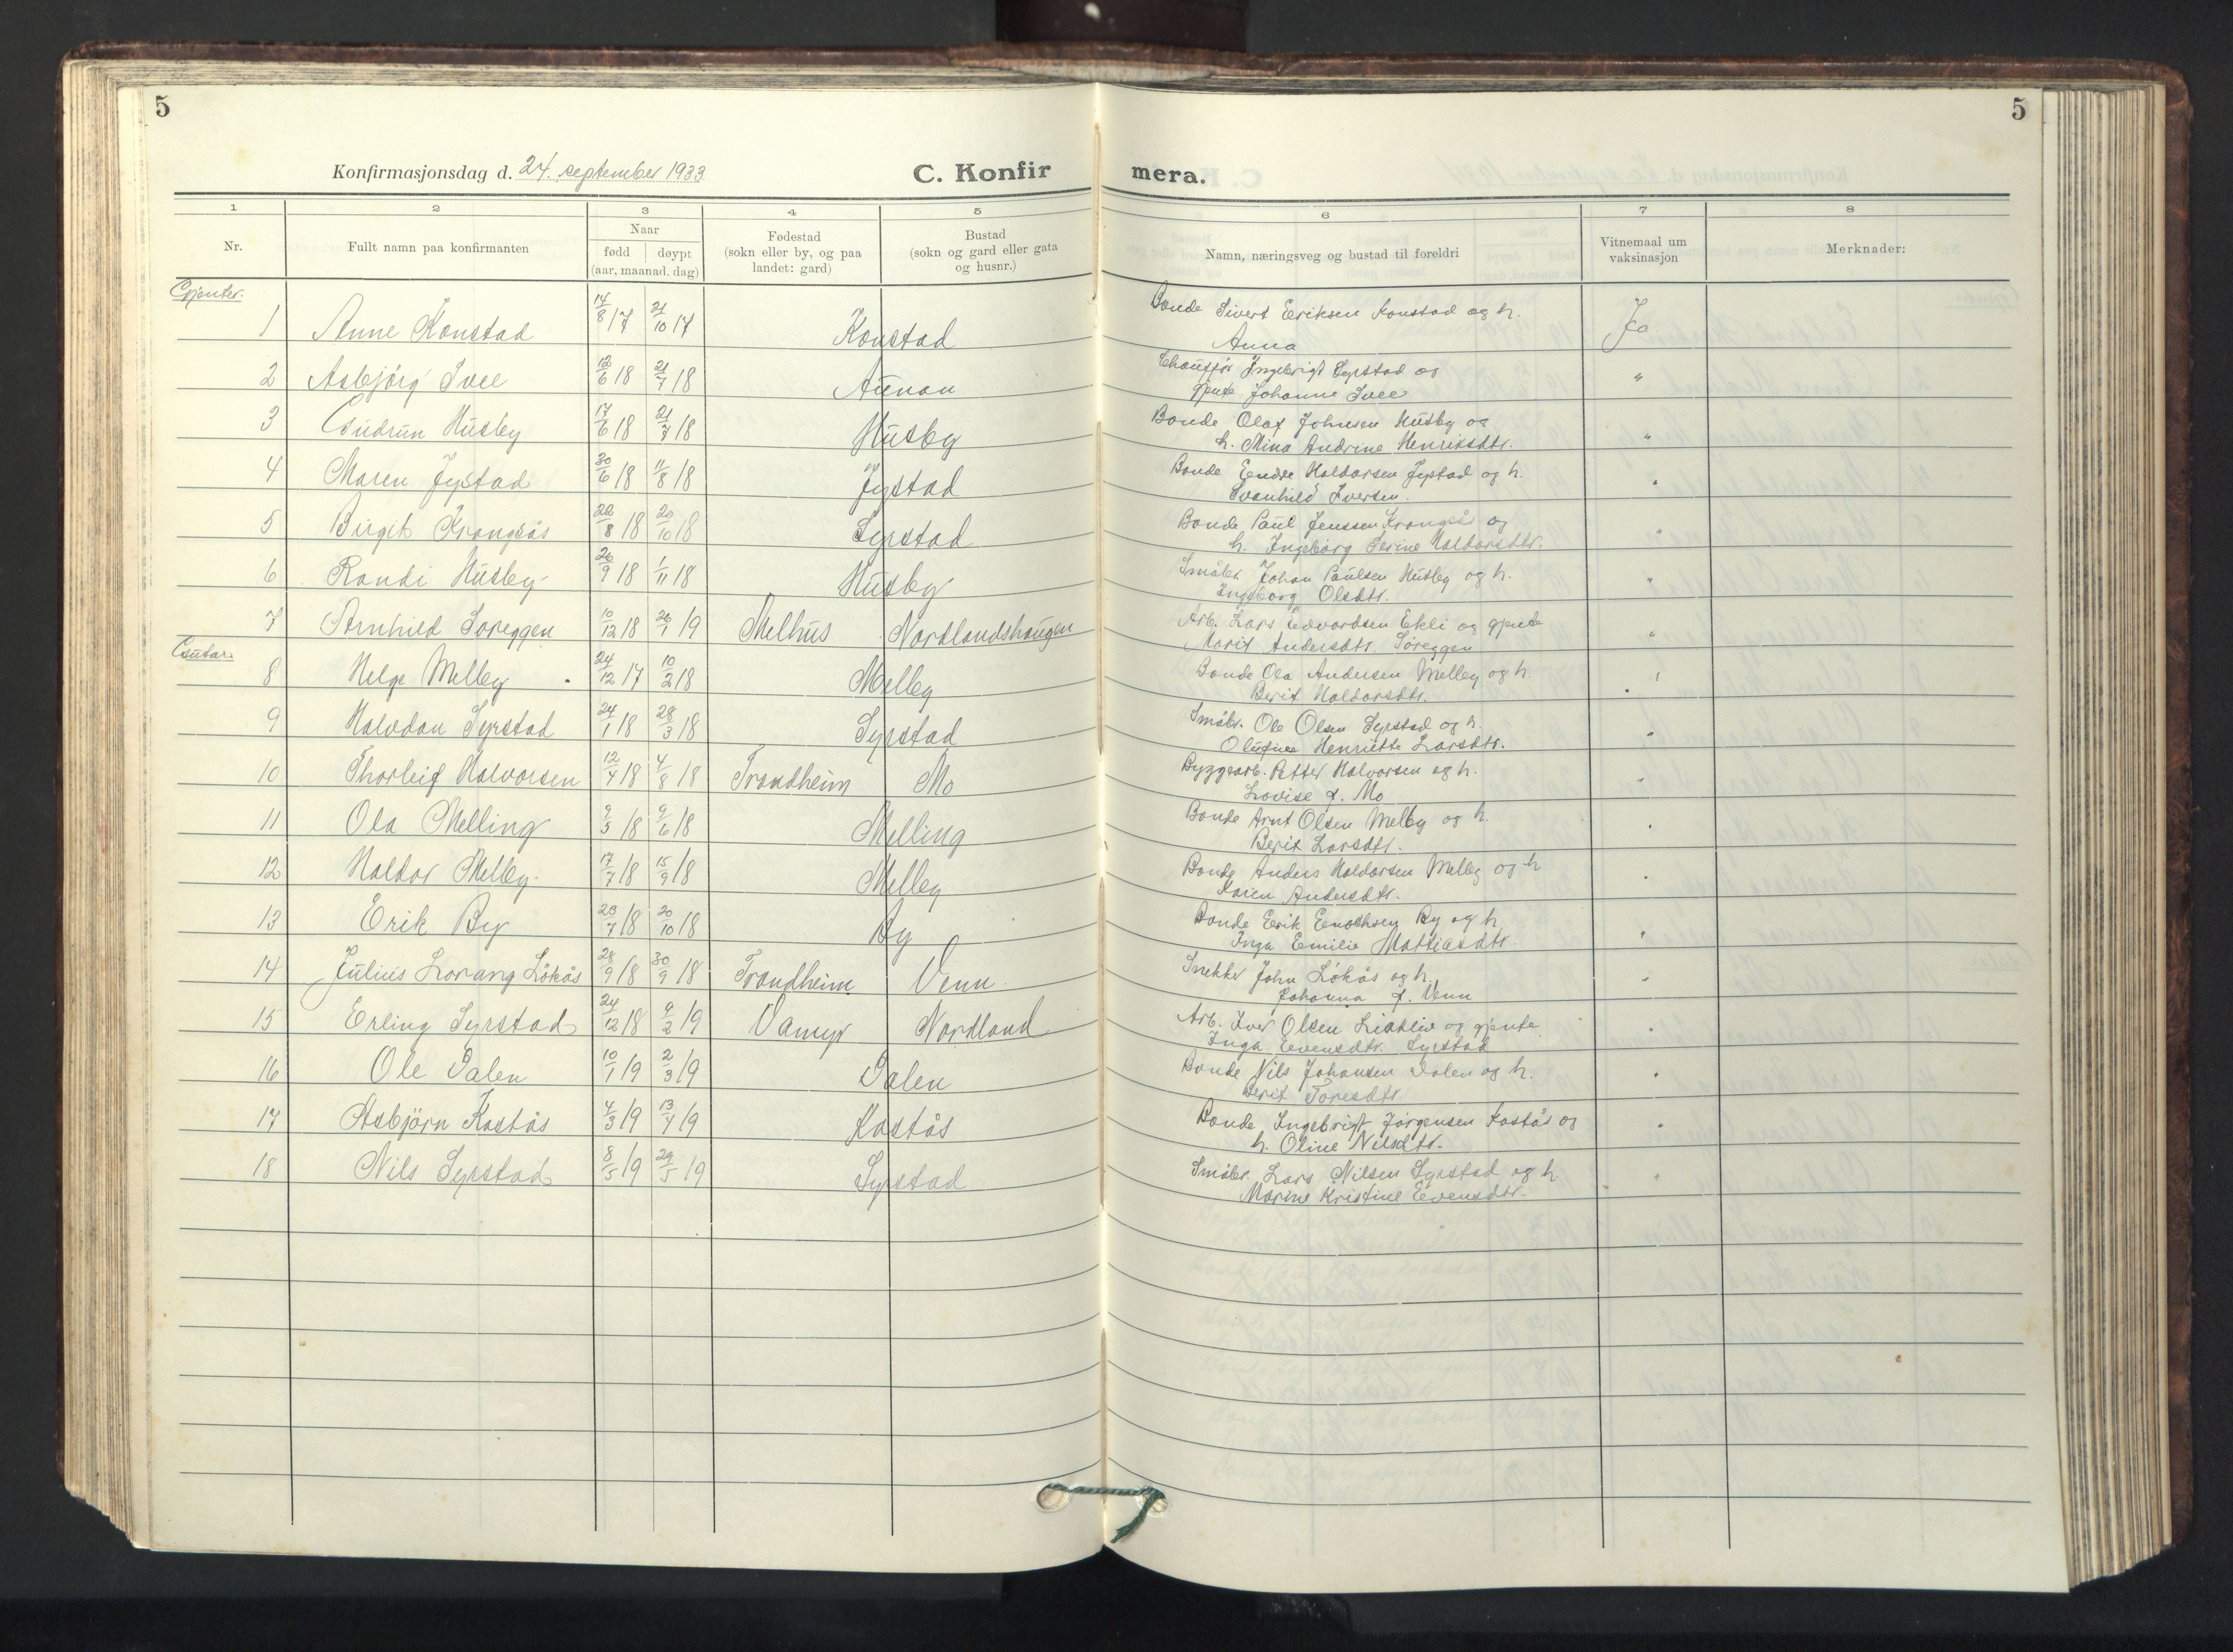 5
5
Konfirmasjonsdag d. 24. september 1933
C. Konfir mera.
1 2 3 4 5 6 7 8
Nr.
Fullt namn paa konfirmanten
Naar
fødd døypt
(aar, maanad, dag)
Fødestad
(sokn eller by, og paa
landet: gard)
Bustad
(sokn og gard eller gata
og husnr.)
Namn, næringsveg og bustad til foreldri
Vitnemaal um
vaksinasjon
Merknader:
Gjenter.
1 Anne Konstad 14/8 17 21/10 17 Konstad Bonde Sivert Eriksen Konstad og h. Ja
Anna
2 Asbjörg Svee 12/6 18 21/7 18 Aunan Chauffør Ingebrigt Syrstad og "
gjente Johanne Svee
3 Gudrun Husby 17/6 18 21/7 18 Husby Bonde Olaf Johnsen Husby og
h. Mina Andrine Henriksdtr. "
4 Maren Jystad 30/6 18 11/8 18 Jystad Bonde Endre Haldorsen Jystad og h. "
Svanhild Iversen.
5 Birgit Krangsås 22/8 18 20/10 18 Syrstad Bonde Paul Jenssen Krangsås og "
h. Ingeborg Serine Haldorsdtr.
6 Randi Husby 26/9 18 1/11 18 Husby Småbr. Johan Paulsen Husby og h. "
Ingeborg Olsdtr.
7 Arnhild Soreggen 10/12 18 26/1 19 Melhus Nordlandshaugen Arb. Lars Edvardsen Ekli og gjente "
Marit Andersdtr. Søreggen
Gutar.
8 Helge Melby 24/12 17 10/2 18 Melby Bonde Ola Andersen Melby og h. "
Berit Haldorsdtr.
9 Halvdan Syrstad 24/1 18 28/3 18 Syrstad Småbr. Ole Olsen Syrstad og h. "
Olufine Henriette Larsdtr.
10 Thorleif Halvorsen 12/4 18 4/8 18 Trondheim Mo Byggearb. Petter Halvorsen og h. "
Lovise f. Mo
11 Ola Melling 9/5 18 9/6 18 Melling Bonde Arnt Olsen Melby og h. "
Berit Larsdtr.
12 Haldor Melby 17/7 18 15/9 18 Melby Bonde Anders Haldorsen Melby og h "
Karen Andersdtr.
13 Erik By 23/7 18 20/10 18 By Bonde Erik Enochsen By og h "
Inga Emilie Mattiasdtr.
14 Julius Lorang Lökås 28/9 18 30/9 18 Trondheim Venn Snekker John Løkås og h. "
Johanna f. Venn
15 Erling Syrstad 24/12 18 9/2 19 Vamyr Nordland Arb. Iver Olsen Liaklev og gjente "
Inga Evensdtr. Syrstad
16 Ole Dalen 10/1 19 2/3 19 Dalen Bonde Nils Johansen Dalen og h. "
Berit Toresdtr.
17 Asbjörn Kastås 4/3 19 13/4 19 Kastås Bonde Ingebrigt Jørgensen Kastås og "
h. Oline Nilsdtr.
18 Nils Syrstad 8/5 19 29/5 19 Syrstad Småbr. Lars Nilsen Syrstad og h "
Marine Kristine Evensdtr.